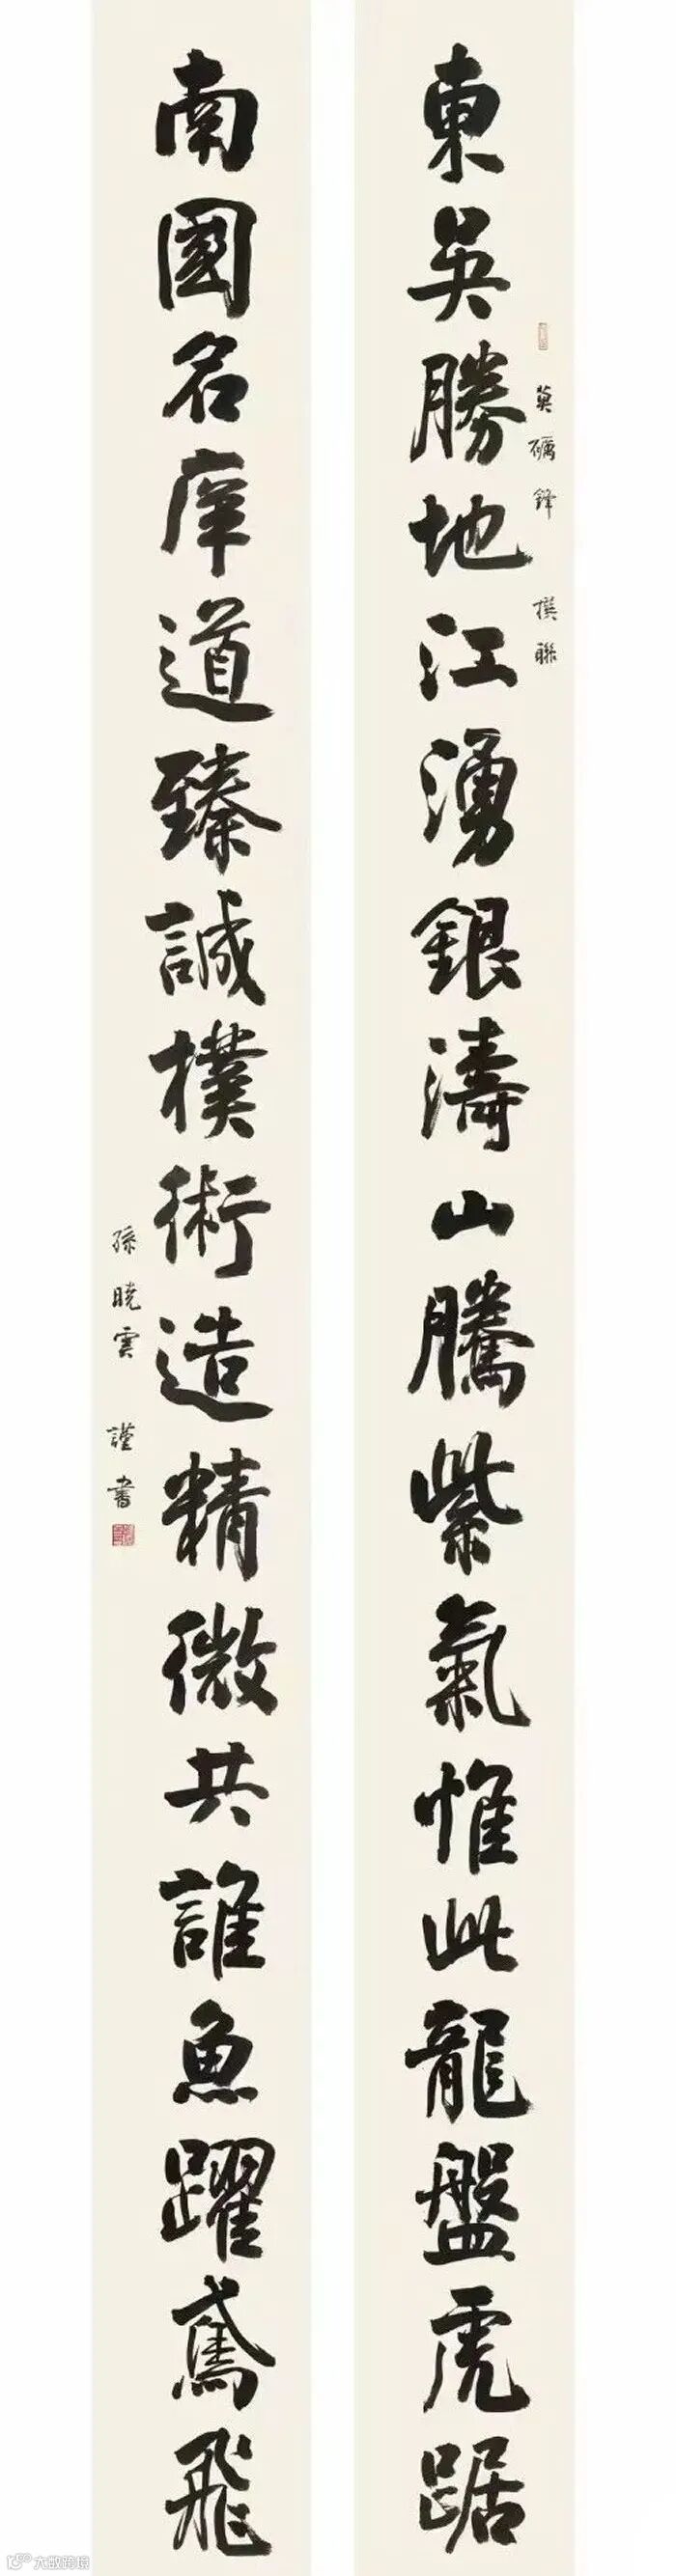 東吳勝地江湧銀濤山騰紫氣惟此龍盤虎踞
莫礪鋒 撰聯
南國名庠道臻誠樸術造精微共誰魚躍鳶飛
孫曉雲 謹書
大数跨境